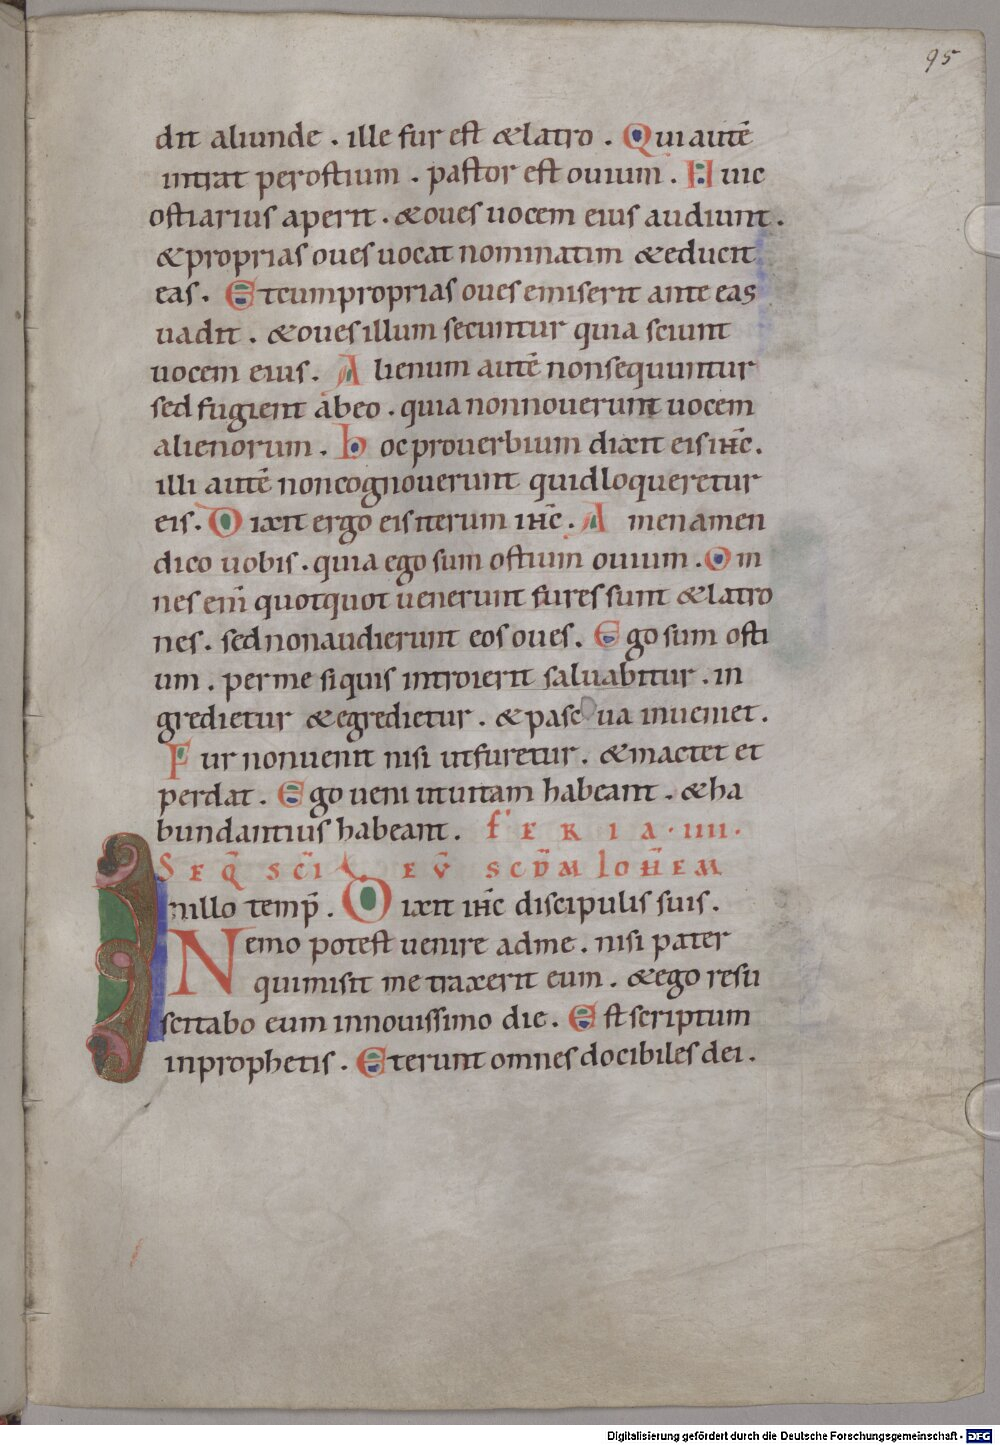 95
dit aliunde . ille fur est & latro . Qui autē
intrat per ostium . pastor est ouium . Huic
ostiarius aperit . & oues uocem eius audiunt .
& proprias oues uocat nominatim & educit
eas . Et cum proprias oues emiserit ante eas
uadit . & oues illum secuntur quia sciunt
uocem eius . Alienum autē non sequuntur
sed fugient ab eo . quia non nouerunt uocem
alienorum . hoc prouerbium dixit eis ihc̄ .
illi autē non cognouerunt quid loqueretur
eis . Dixit ergo eis iterum ihc̄ . Amen amen
dico uobis . quia ego sum ostium ouium . Om
nes em̄ quotquot uenerunt fures sunt & latro
nes . sed non audierunt eos oues . Ego sum osti
um . per me si quis introierit saluabitur . in
gredietur & egredietur . & pascua inueniet .
Fur non uenit nisi ut furetur . & mactet et
perdat . Ego ueni ut uitam habeant . & ha
bundantius habeant . FERIA · IIII ·
SEQ̄ SCĪ EV̄ SCD̄M IOH̄EM
In illo temp̄ . Dixit ihc̄ discipulis suis .
Nemo potest uenire ad me . nisi pater
qui misit me traxerit eum . & ego resu
scitabo eum in nouissimo die . Est scriptum
in prophetis . Et erunt omnes docibiles dei .
Digitalisierung gefördert durch die Deutsche Forschungsgemeinschaft - DFG